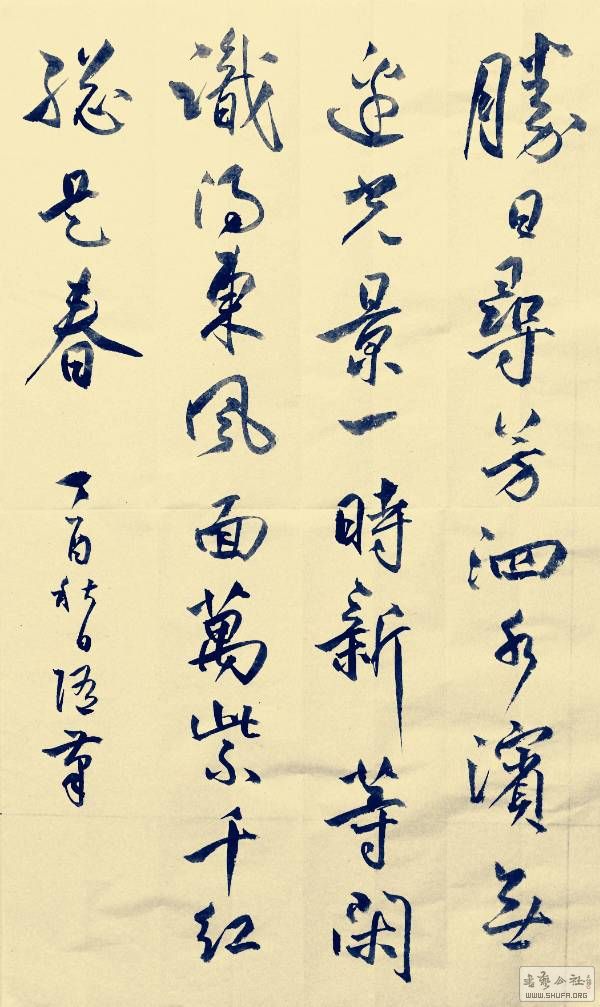 勝日尋芳泗水濱無
邊光景一時新等閑
識得東風面萬紫千紅
總是春
丁酉秋日隨筆
書藝公社
WWW.SHUFA.ORG